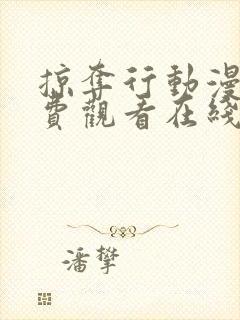 掠奪行動漫
費觀看在綫
潘攀